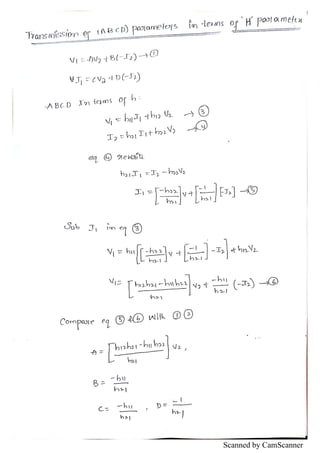 Transmission of (ABCD) parameters in terms of 'H' parameter
V₁ = AV₂ + B(-I₂) → ①
I₁ = CV₂ + D(-I₂)
ABCD In terms of h:
V₁ = h₁₁I₁ + h₁₂ V₂ → ③
I₂ = h₂₁ I₁ + h₂₂ V₂ → ④
eq ④ rewrite
h₂₁I₁ = I₂ - h₂₂V₂
I₁ = [-h₂₂/h₂₁] V + [-1/h₂₁] [-I₂] → ⑤
Sub I₁ in eq ③
V₁ = h₁₁[[-h₂₂/h₂₁] V + [-1/h₂₁] -I₂] + h₁₂V₂
V₁ = [h₁₂h₂₁ - h₁₁h₂₂/h₂₁] V₂ + -h₁₁/h₂₁ (-I₂) → ⑥
Compare eq ⑤ & ⑥ with ① ②
A = [h₁₂h₂₁ - h₁₁h₂₂/h₂₁] V₂,
B = -h₁₁/h₂₁
C = -h₁₁/h₂₁ , D = -1/h₂₁
Scanned by CamScanner